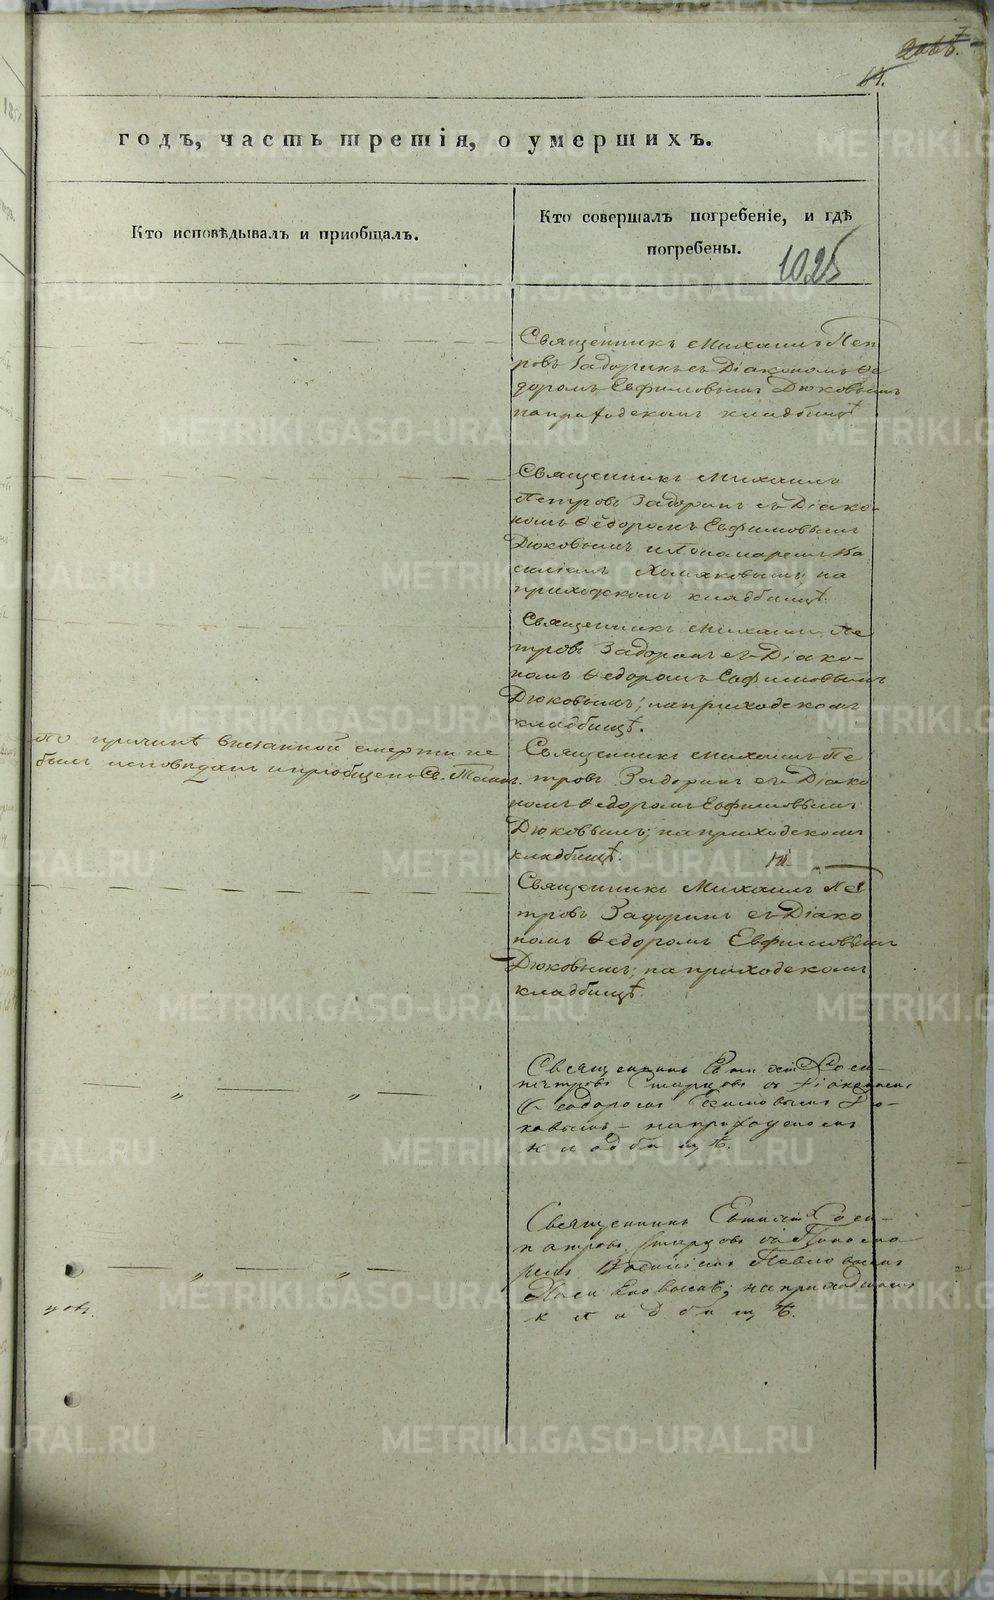 2068.
годъ, часть третія, о умершихъ.
Кто исповѣдывалъ и пріобщалъ.
Кто совершалъ погребеніе, и гдѣ
погребены.
1025
Священникъ Михаилъ Пет
ровъ Задоринъ съ Діакономъ Ѳе
доромъ Евфимовымъ Дюковымъ
на приходскомъ кладбищѣ
Священникъ Михаилъ
Петровъ Задоринъ съ Діако-
номъ Ѳедоромъ Евфимовымъ
Дюковымъ и Пономаремъ Ва
силіемъ Хомяковымъ; на
приходскомъ кладбищѣ.
Священникъ Михаилъ Пе
тровъ Задоринъ съ Діако-
номъ Ѳедоромъ Евфимовымъ
Дюковымъ; на приходскомъ
кладбищѣ.
по причинѣ внезапной смерти не
былъ исповѣданъ и пріобщенъ Св. Таинъ.
Священникъ Михаилъ Пе
тровъ Задоринъ съ Діако
номъ Ѳедоромъ Евфимовымъ
Дюковымъ; на приходскомъ
кладбищѣ.
Священникъ Михаилъ Пе
тровъ Задоринъ съ Діако
номъ Ѳедоромъ Евфимовымъ
Дюковымъ; на приходскомъ
кладбищѣ.
Священникъ
съ Діакономъ
Ѳеодоромъ Дю-
ковымъ – на приходскомъ
кладбищѣ.
Священникъ
съ Понома
ремъ Василіемъ Павловымъ
на приходскомъ
кладбищѣ.
METRIKI.GASO-URAL.RU